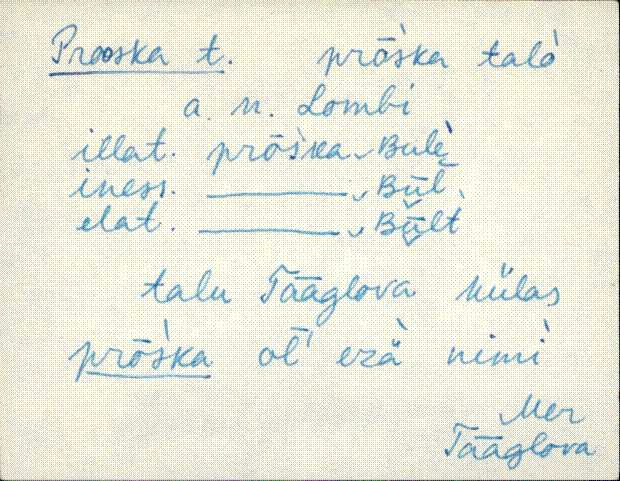 Prooska t. prōs̀ka talò
a. n. Lombi
illat. prōs̀ka Bulè
iness. ——— Būl
elat. ——— Būlt
talu Tääglova külas
prōs̀ka ol̄' ezà nimì
Mer
Tääglova